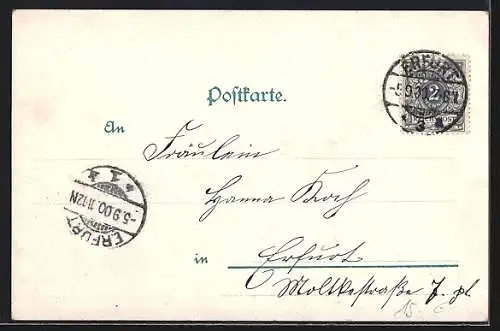 Postkarte.
ERFURT
-5.9.00.
* 3 *
An
Fräulein
Hanna Koch
* 1 *
-5.9.00.11-12N
ERFURT
in Erfurt
Moltkestraße 7. pl.
15.-